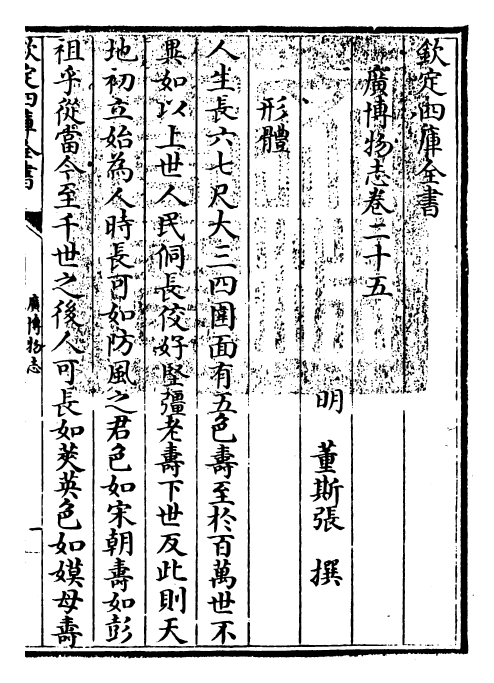 欽定四庫全書
廣博物志卷二十五
明　董斯張　撰
形體
人生長六七尺大三四圍面有五色壽至於百萬世不
異如以上世人民侗長佼好堅彊老壽下世反此則天
地初立始為人時長可如防風之君色如宋朝壽如彭
祖乎從當今至千世之後人可長如莢英色如嫫母壽
欽定四庫全書
廣博物志
一